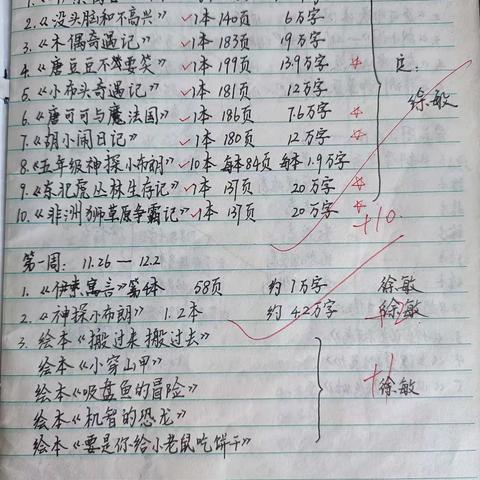 2.《没头脑和不高兴》 ✓1本 140页 6万字
3.《木偶奇遇记》 ✓1本 183页 19万字
4.《唐豆豆不要笑》 ✓1本 199页 13.9万字 ☆ 定:
5.《小布头奇遇记》 ✓1本 181页 12万字 徐敏
6.《唐可可与魔法国》 ✓1本 186页 7.6万字 ☆
7.《胡小闹日记》 ✓1本 180页 12万字 ☆
8.《五年级神探小布朗》 ✓10本 每本84页 每本1.9万字
9.《东北虎丛林生存记》 ✓1本 137页 20万字 ☆
10.《非洲狮草原争霸记》 ✓1本 137页 20万字 ☆ +10
第一周: 11.26 — 12.2
1.《伊索寓言》第1本 58页 约1万字 徐敏
2.《神探小布朗》 1.2本 约4.2万字 徐敏 +2
3. 绘本《搬过来搬过去》
绘本《小穿山甲》
绘本《吸盘鱼的冒险》 +1 徐敏
绘本《机智的恐龙》
绘本《要是你给小老鼠吃饼干》